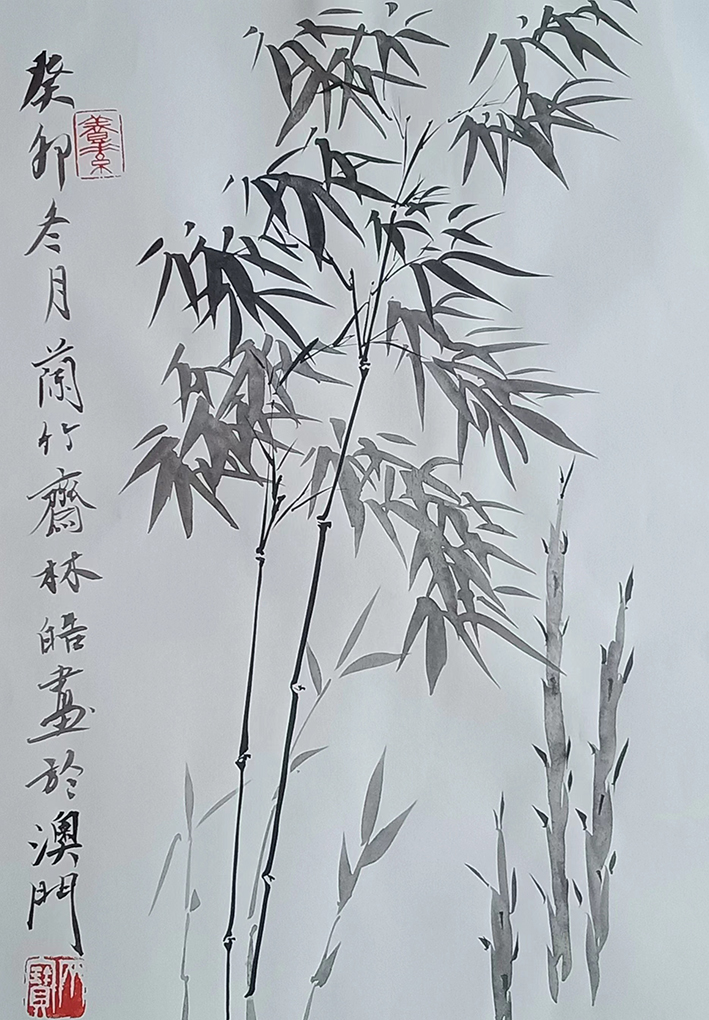 癸卯冬月蘭竹齋林皓畫於澳門